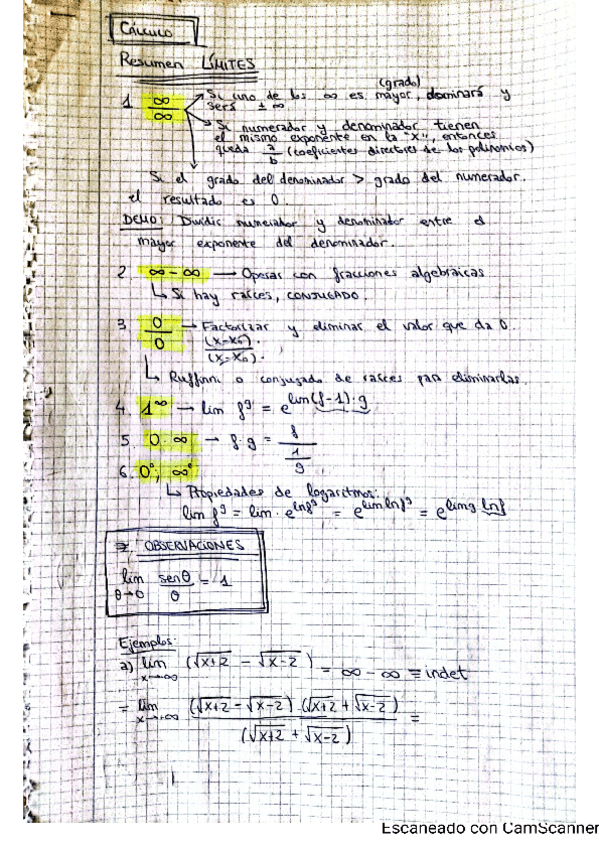 CÁLCULO
Resumen LÍMITES
(grado)
1. ∞/∞ → Si uno de los ∞ es mayor, dominará y
será ± ∞
→ Si numerador y denominador tienen
el mismo exponente en la "x", entonces
queda a/b (coeficientes directores de los polinomios)
Si el grado del denominador > grado del numerador.
el resultado es 0.
DEMO: Dividir numerador y denominador entre el
mayor exponente del denominador.
2. ∞ - ∞ → Operar con fracciones algebráicas
↳ Si hay raíces, CONJUGADO.
3. 0/0 → Factorizar y eliminar el valor que da 0.
(x-x₀)·
/(x-x₀)·
↳ Ruffinni o conjugado de raíces para eliminarlas.
4. 1^∞ → lim f^g = e^lim(f-1)·g
5. 0·∞ → f·g = f/(1/g)
6. 0⁰; ∞⁰
↳ Propiedades de logaritmos:
lim f^g = lim· e^lnf^g = e^lim lnf^g = e^lim g lnf
7. OBSERVACIONES
lim θ→0 senθ/θ = 1
Ejemplos:
a) lim x→+∞ (√x+2 - √x-2) = ∞ - ∞ ≡ indet
= lim x→+∞ (√x+2 - √x-2)·(√x+2 + √x-2) / (√x+2 + √x-2) =
Escaneado con CamScanner